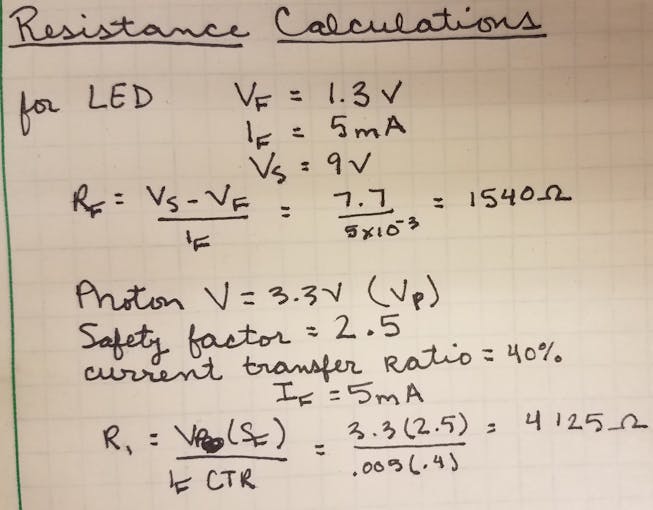 Resistance Calculations
for LED V_F = 1.3 V
I_F = 5 mA
V_S = 9 V
R_F = (V_S - V_F) / I_F = 7.7 / 5×10^-3 = 1540 Ω
Photon V = 3.3 V (V_P)
Safety factor = 2.5
current transfer Ratio = 40%
I_F = 5 mA
R_1 = V_P (S_F) / I_F CTR = 3.3(2.5) / .005(.4) = 4125 Ω